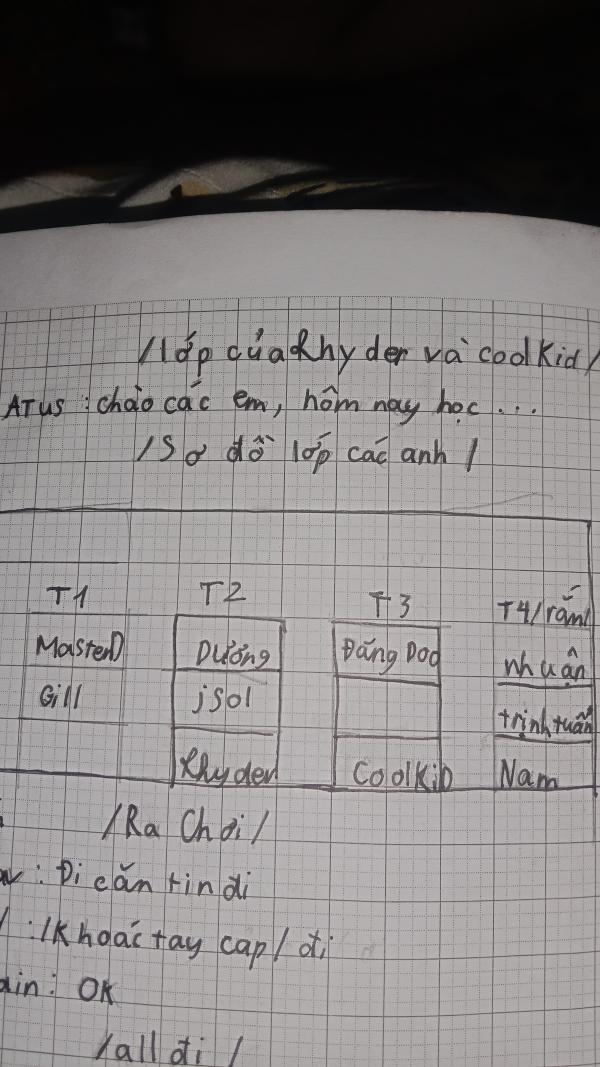 /lớp của Rhyder và coolKid/
ATUS : chào các em, hôm nay học ...
/Sơ đồ lớp các anh/
T1 T2 T3 T4/rắn/
MasterD Dương Đăng Doo nhuận
Gill jSol trịnh tuấn
Rhyder CoolKiD Nam
/Ra Chơi/
: Đi căn tin đi
: /Khoác tay cap/ đi
ain: OK
/all đi /